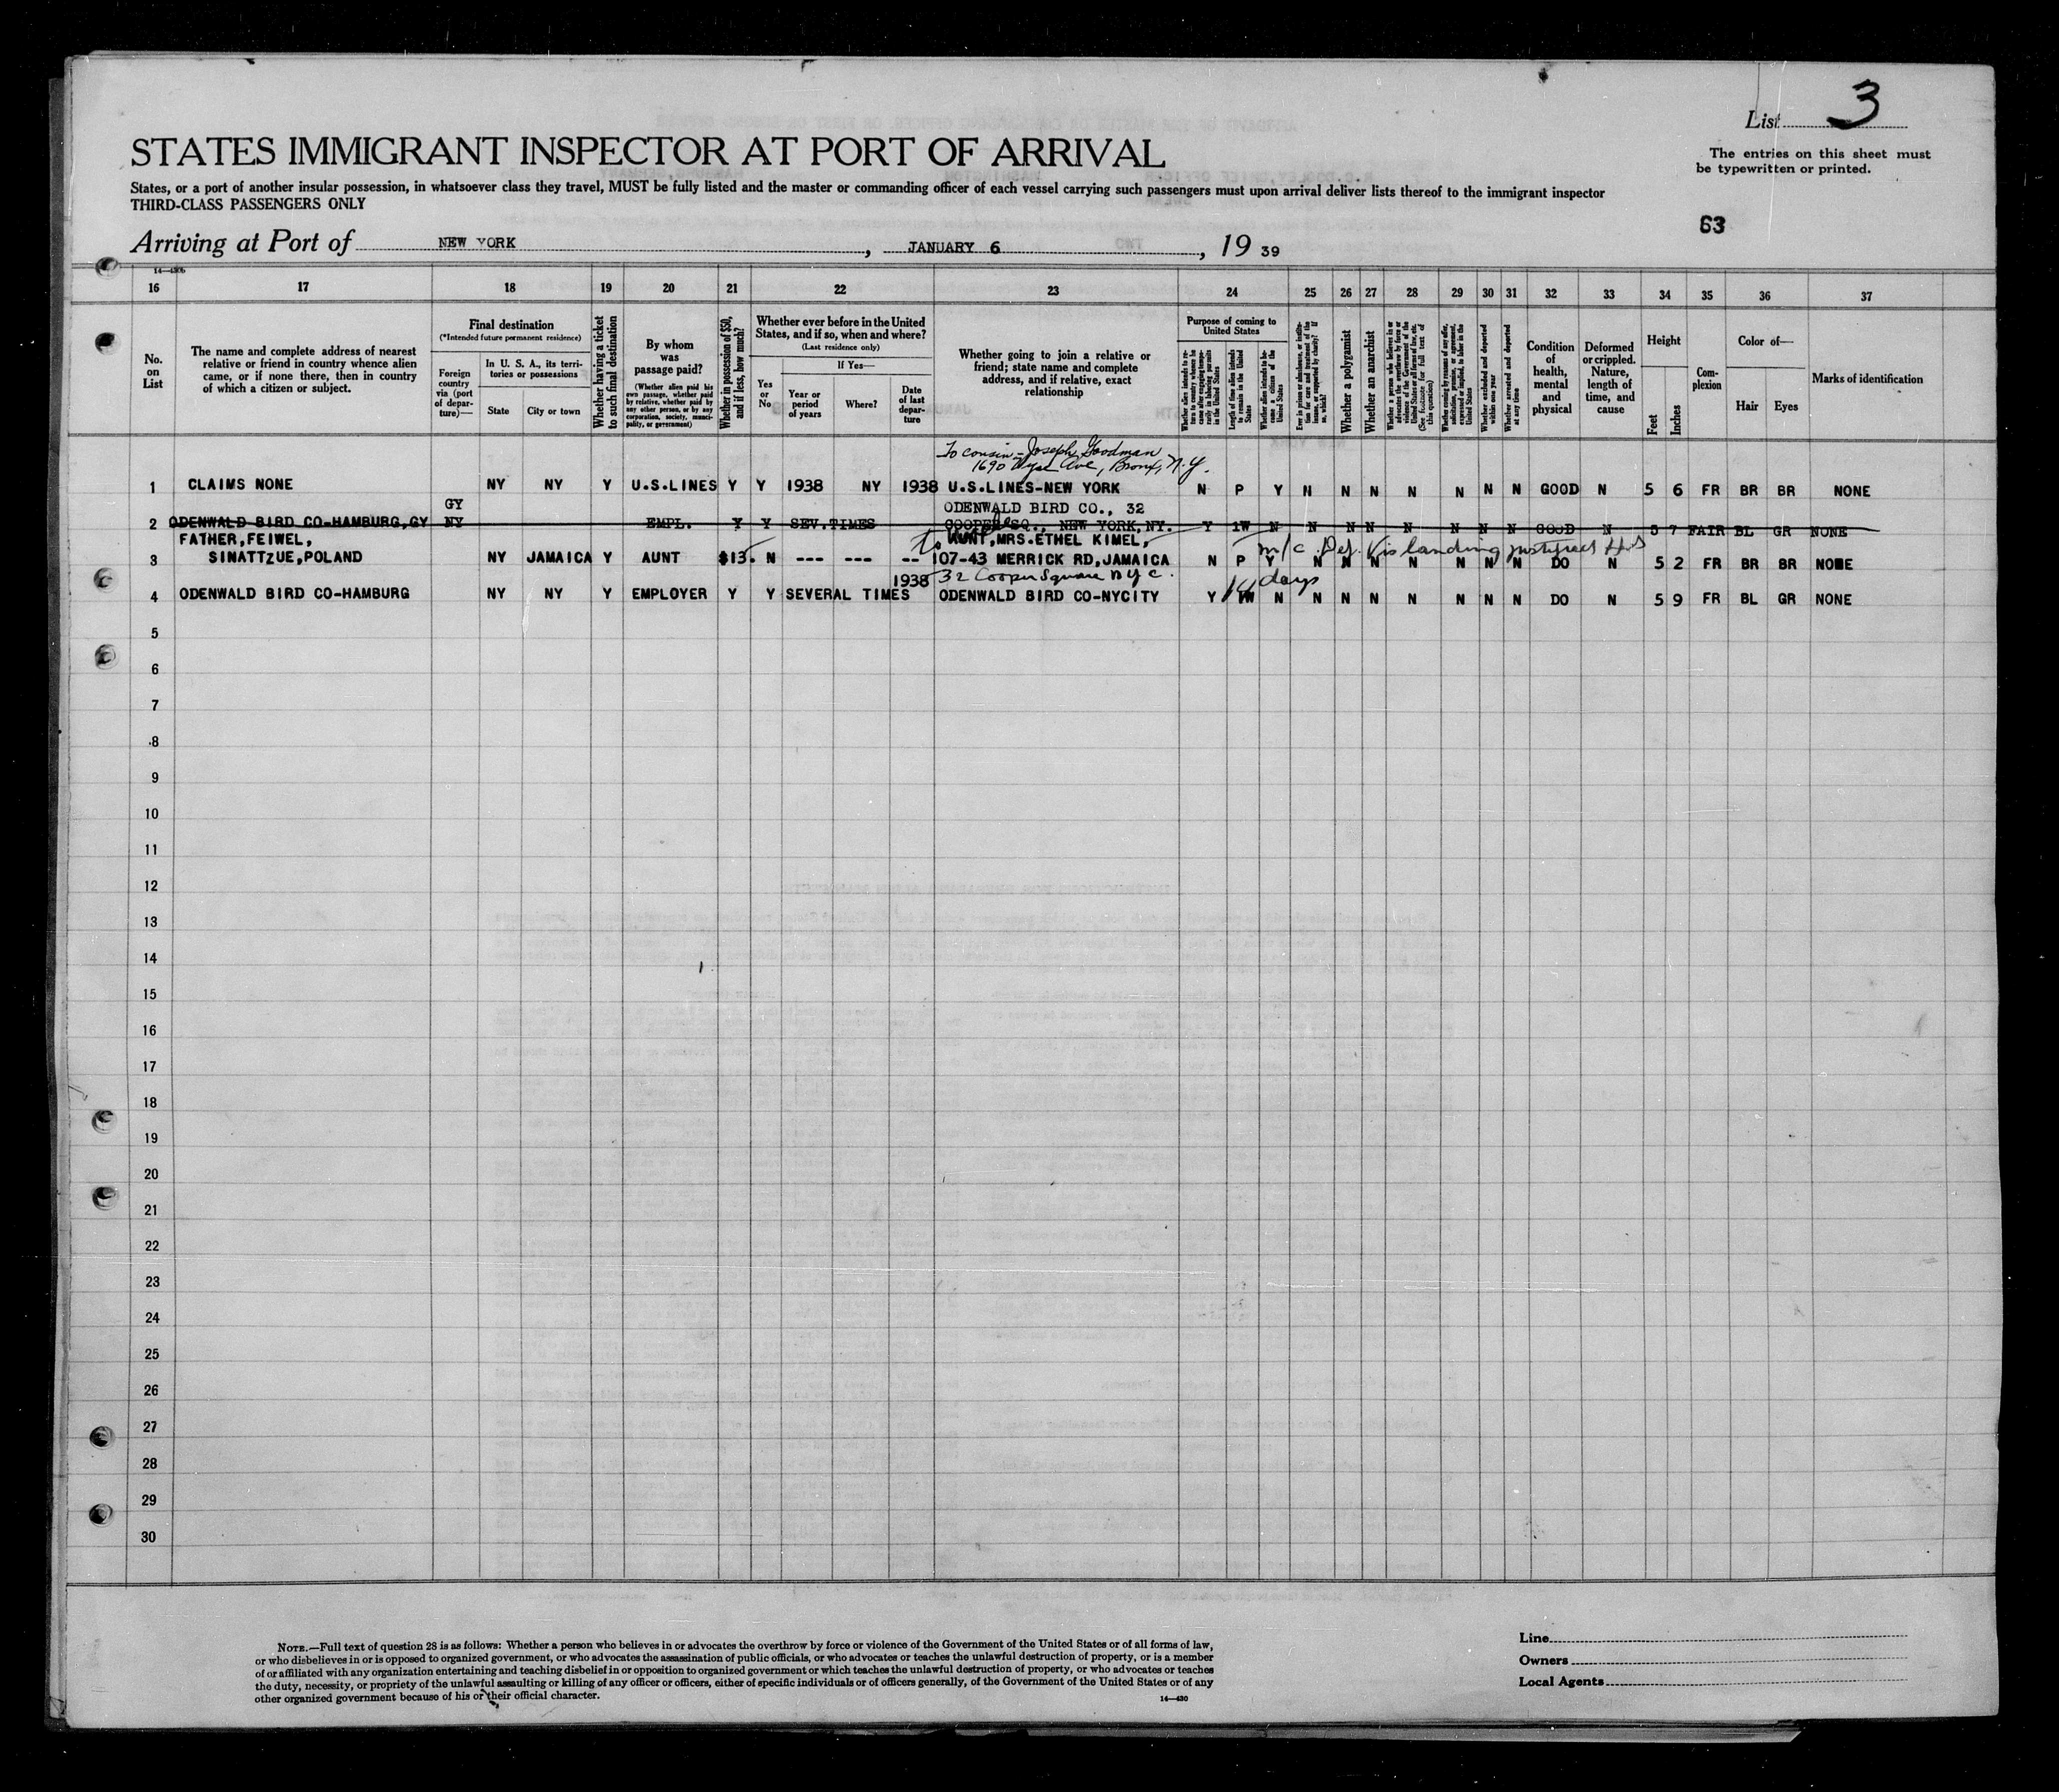 List 3
STATES IMMIGRANT INSPECTOR AT PORT OF ARRIVAL
The entries on this sheet must
be typewritten or printed.
States, or a port of another insular possession, in whatsoever class they travel, MUST be fully listed and the master or commanding officer of each vessel carrying such passengers must upon arrival deliver lists thereof to the immigrant inspector
THIRD-CLASS PASSENGERS ONLY
63
Arriving at Port of NEW YORK, JANUARY 6, 19 39
16 17 18 19 20 21 22 23 24 25 26 27 28 29 30 31 32 33 34 35 36 37
No.
on
List
The name and complete address of nearest
relative or friend in country whence alien
came, or if none there, then in country
of which a citizen or subject.
Final destination
(*Intended future permanent residence)
Foreign
country
via (port
of depar-
ture)—
In U. S. A., its terri-
tories or possessions
State
City or town
Whether having a ticket
to such final destination
By whom
was
passage paid?
(Whether alien paid his
own passage, whether paid
by relative, whether paid by
any other person, or by any
corporation, society, munici-
pality, or government)
Whether in possession of $50,
and if less, how much?
Whether ever before in the United
States, and if so, when and where?
(Last residence only)
Yes
or
No
If Yes—
Year or
period
of years
Where?
Date
of last
depar-
ture
Whether going to join a relative or
friend; state name and complete
address, and if relative, exact
relationship
Purpose of coming to
United States
Length of time alien intends
to remain in the United
States
Whether alien intends to be-
come a citizen of the
United States
Whether a polygamist
Whether an anarchist
(See footnote for full text of
this question)
Whether arrested and deported
at any time
Condition
of
health,
mental
and
physical
Deformed
or crippled.
Nature,
length of
time, and
cause
Height
Feet
Inches
Com-
plexion
Color of—
Hair
Eyes
Marks of identification
To cousin - Joseph Goodman
1690 Ave, Bronx, N.Y.
1 CLAIMS NONE NY NY Y U.S.LINES Y Y 1938 NY 1938 U.S.LINES-NEW YORK N P Y N N N N N N N GOOD N 5 6 FR BR BR NONE
GY ODENWALD BIRD CO., 32
2 ODENWALD BIRD CO-HAMBURG,GY NY EMPL. Y Y SEV.TIMES COOPER SQ., NEW YORK, NY. Y 1W N N N N N N N N GOOD N 5 7 FAIR BL GR NONE
FATHER,FEIWEL, to AUNT,MRS.ETHEL KIMEL, m/c Def. Vis landing justified
3 SINATTZUE,POLAND NY JAMAICA Y AUNT $13. N --- --- -- 107-43 MERRICK RD,JAMAICA N P Y N N N N N N N DO N 5 2 FR BR BR NONE
1938 32 Cooper Square NYC. 14 days
4 ODENWALD BIRD CO-HAMBURG NY NY Y EMPLOYER Y Y SEVERAL TIMES ODENWALD BIRD CO-NYCITY Y 1W N N N N N N N N DO N 5 9 FR BL GR NONE
5
6
7
8
9
10
11
12
13
14
15
16
17
18
19
20
21
22
23
24
25
26
27
28
29
30
NOTE.—Full text of question 28 is as follows: Whether a person who believes in or advocates the overthrow by force or violence of the Government of the United States or of all forms of law,
or who disbelieves in or is opposed to organized government, or who advocates the assassination of public officials, or who advocates or teaches the unlawful destruction of property, or is a member
of or affiliated with any organization entertaining and teaching disbelief in or opposition to organized government or which teaches the unlawful destruction of property, or who advocates or teaches
the duty, necessity, or propriety of the unlawful assaulting or killing of any officer or officers, either of specific individuals or of officers generally, of the Government of the United States or of any
other organized government because of his or their official character.
14—430
Line
Owners
Local Agents